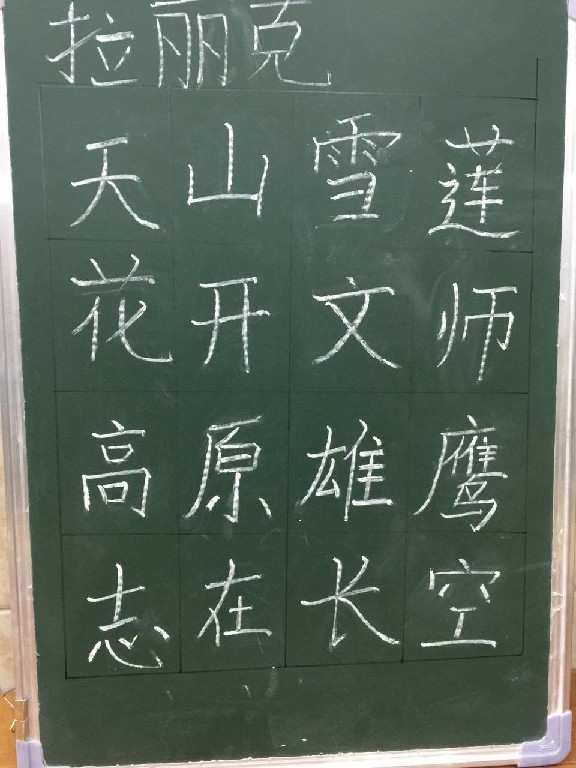 拉丽克
天山雪莲
花开文师
高原雄鹰
志在长空